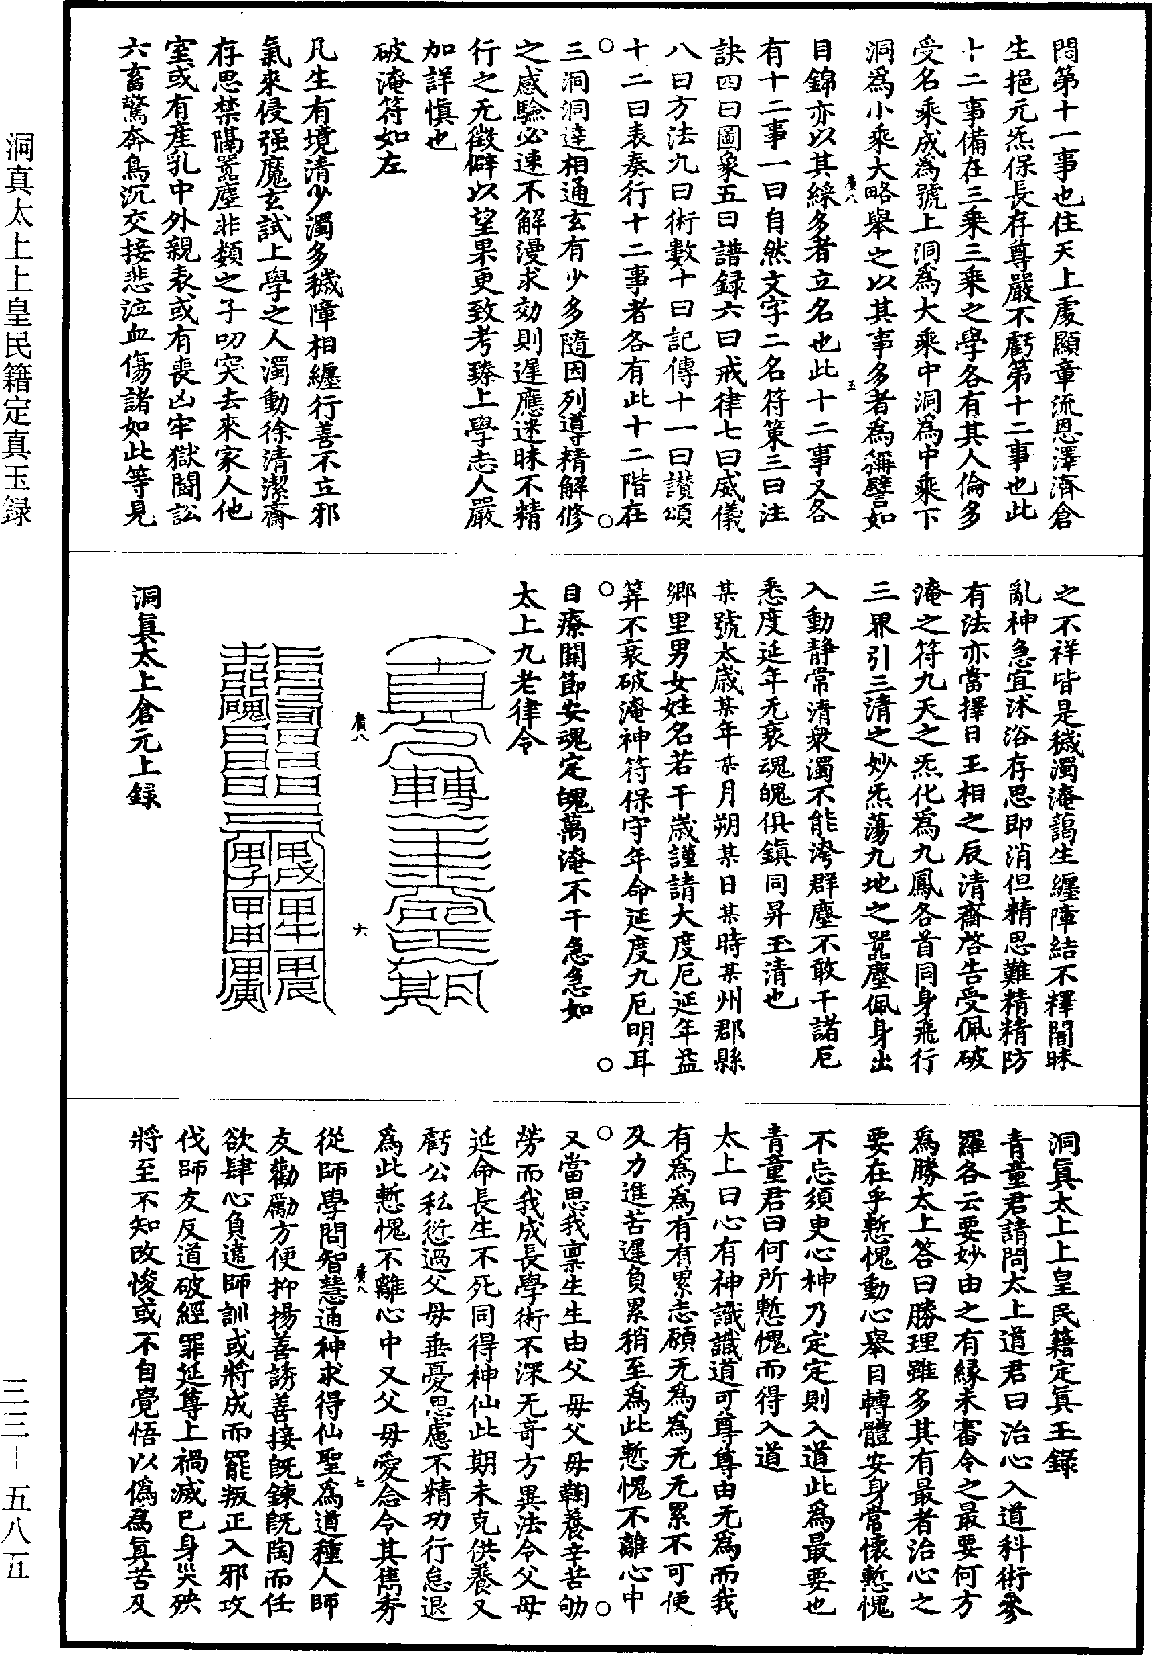 問第十一事也住天上處顯章流恩澤濟倉
生挹元炁保長存尊嚴不虧第十二事也此
十二事備在三乘三乘之學各有其人倫多
受名乘成為號上洞為大乘中洞為中乘下
洞為小乘大略舉之以其事多者為稱譬如
廣八 五
目錦亦以其綵多者立名也此十二事又各
有十二事一曰自然文字二名符策三曰注
訣四曰圖象五曰譜録六曰戒律七曰威儀
八曰方法九曰術數十曰記傳十一曰讃頌
十二曰表奏行十二事者各有此十二階在
三洞洞達相通玄有少多隨因列導精解修
之感驗必速不解漫求効則遲應迷昧不精
行之无徵僻以望果更致考臻上學志人嚴
加詳慎也
破淹符如左
凡生有境清少濁多穢障相纏行善不立邪
氣來侵强魔玄試上學之人濁動徐清潔齋
存思禁隔囂塵非類之子叨突去來家人他
室或有產乳中外親表或有喪凶牢獄鬪訟
六畜驚奔鳥沉交接悲泣血傷諸如此等見
之不祥皆是穢濁淹藹生纏障結不釋闇昧
亂神急宜沐浴存思即消但精思難精精防
有法亦當擇日王相之辰清齋啓告受佩破
淹之符九天之炁化為九鳳各首同身飛行
三界引三清之妙炁蕩九地之囂塵佩身出
入動静常清衆濁不能涔群塵不敢干諸厄
悉度延年无衰魂魄俱鎮同昇玉清也
某號太歲某年某月朔某日某時某州郡縣
鄉里男女姓名若干歲謹請大度厄延年益
筭不衰破淹神符保守年命延度九厄明耳
目療關節安魂定魄萬淹不干急急如
太上九老律令
廣八 六
洞真太上倉元上録
洞真太上上皇民籍定真玉録
青童君請問太上道君曰治心入道科術參
羅各云要妙由之有緣未審令之最要何方
為勝太上答曰勝理雖多其有最者治心之
要在乎慙愧動心舉目轉體安身常懷慙愧
不忘須臾心神乃定定則入道此為最要也
青童君曰何所慙愧而得入道
太上曰心有神識識道可尊尊由无為而我
有為為有有累志願无為為无无累不可便
及力進苦遲負累稍至為此慙愧不離心中
又當思我禀生生由父母父母鞠養辛苦劬
勞而我成長學術不深无奇方異法令父母
延命長生不死同得神仙此期未克供養又
虧公私愆過父母垂憂思慮不精功行怠退
為此慙愧不離心中又父母愛念令其雋秀
廣八 七
從師學問智慧通神求得仙聖為道種人師
友勸勵方便抑揚善誘善接既鍊既陶而任
欲肆心負違師訓或將成而罷叛正入邪攻
伐師友反道破經罪延尊上禍滅己身災殃
將至不知改悛或不自覺悟以偽為真苦及
洞真太上上皇民籍定真玉録
三三－五八五